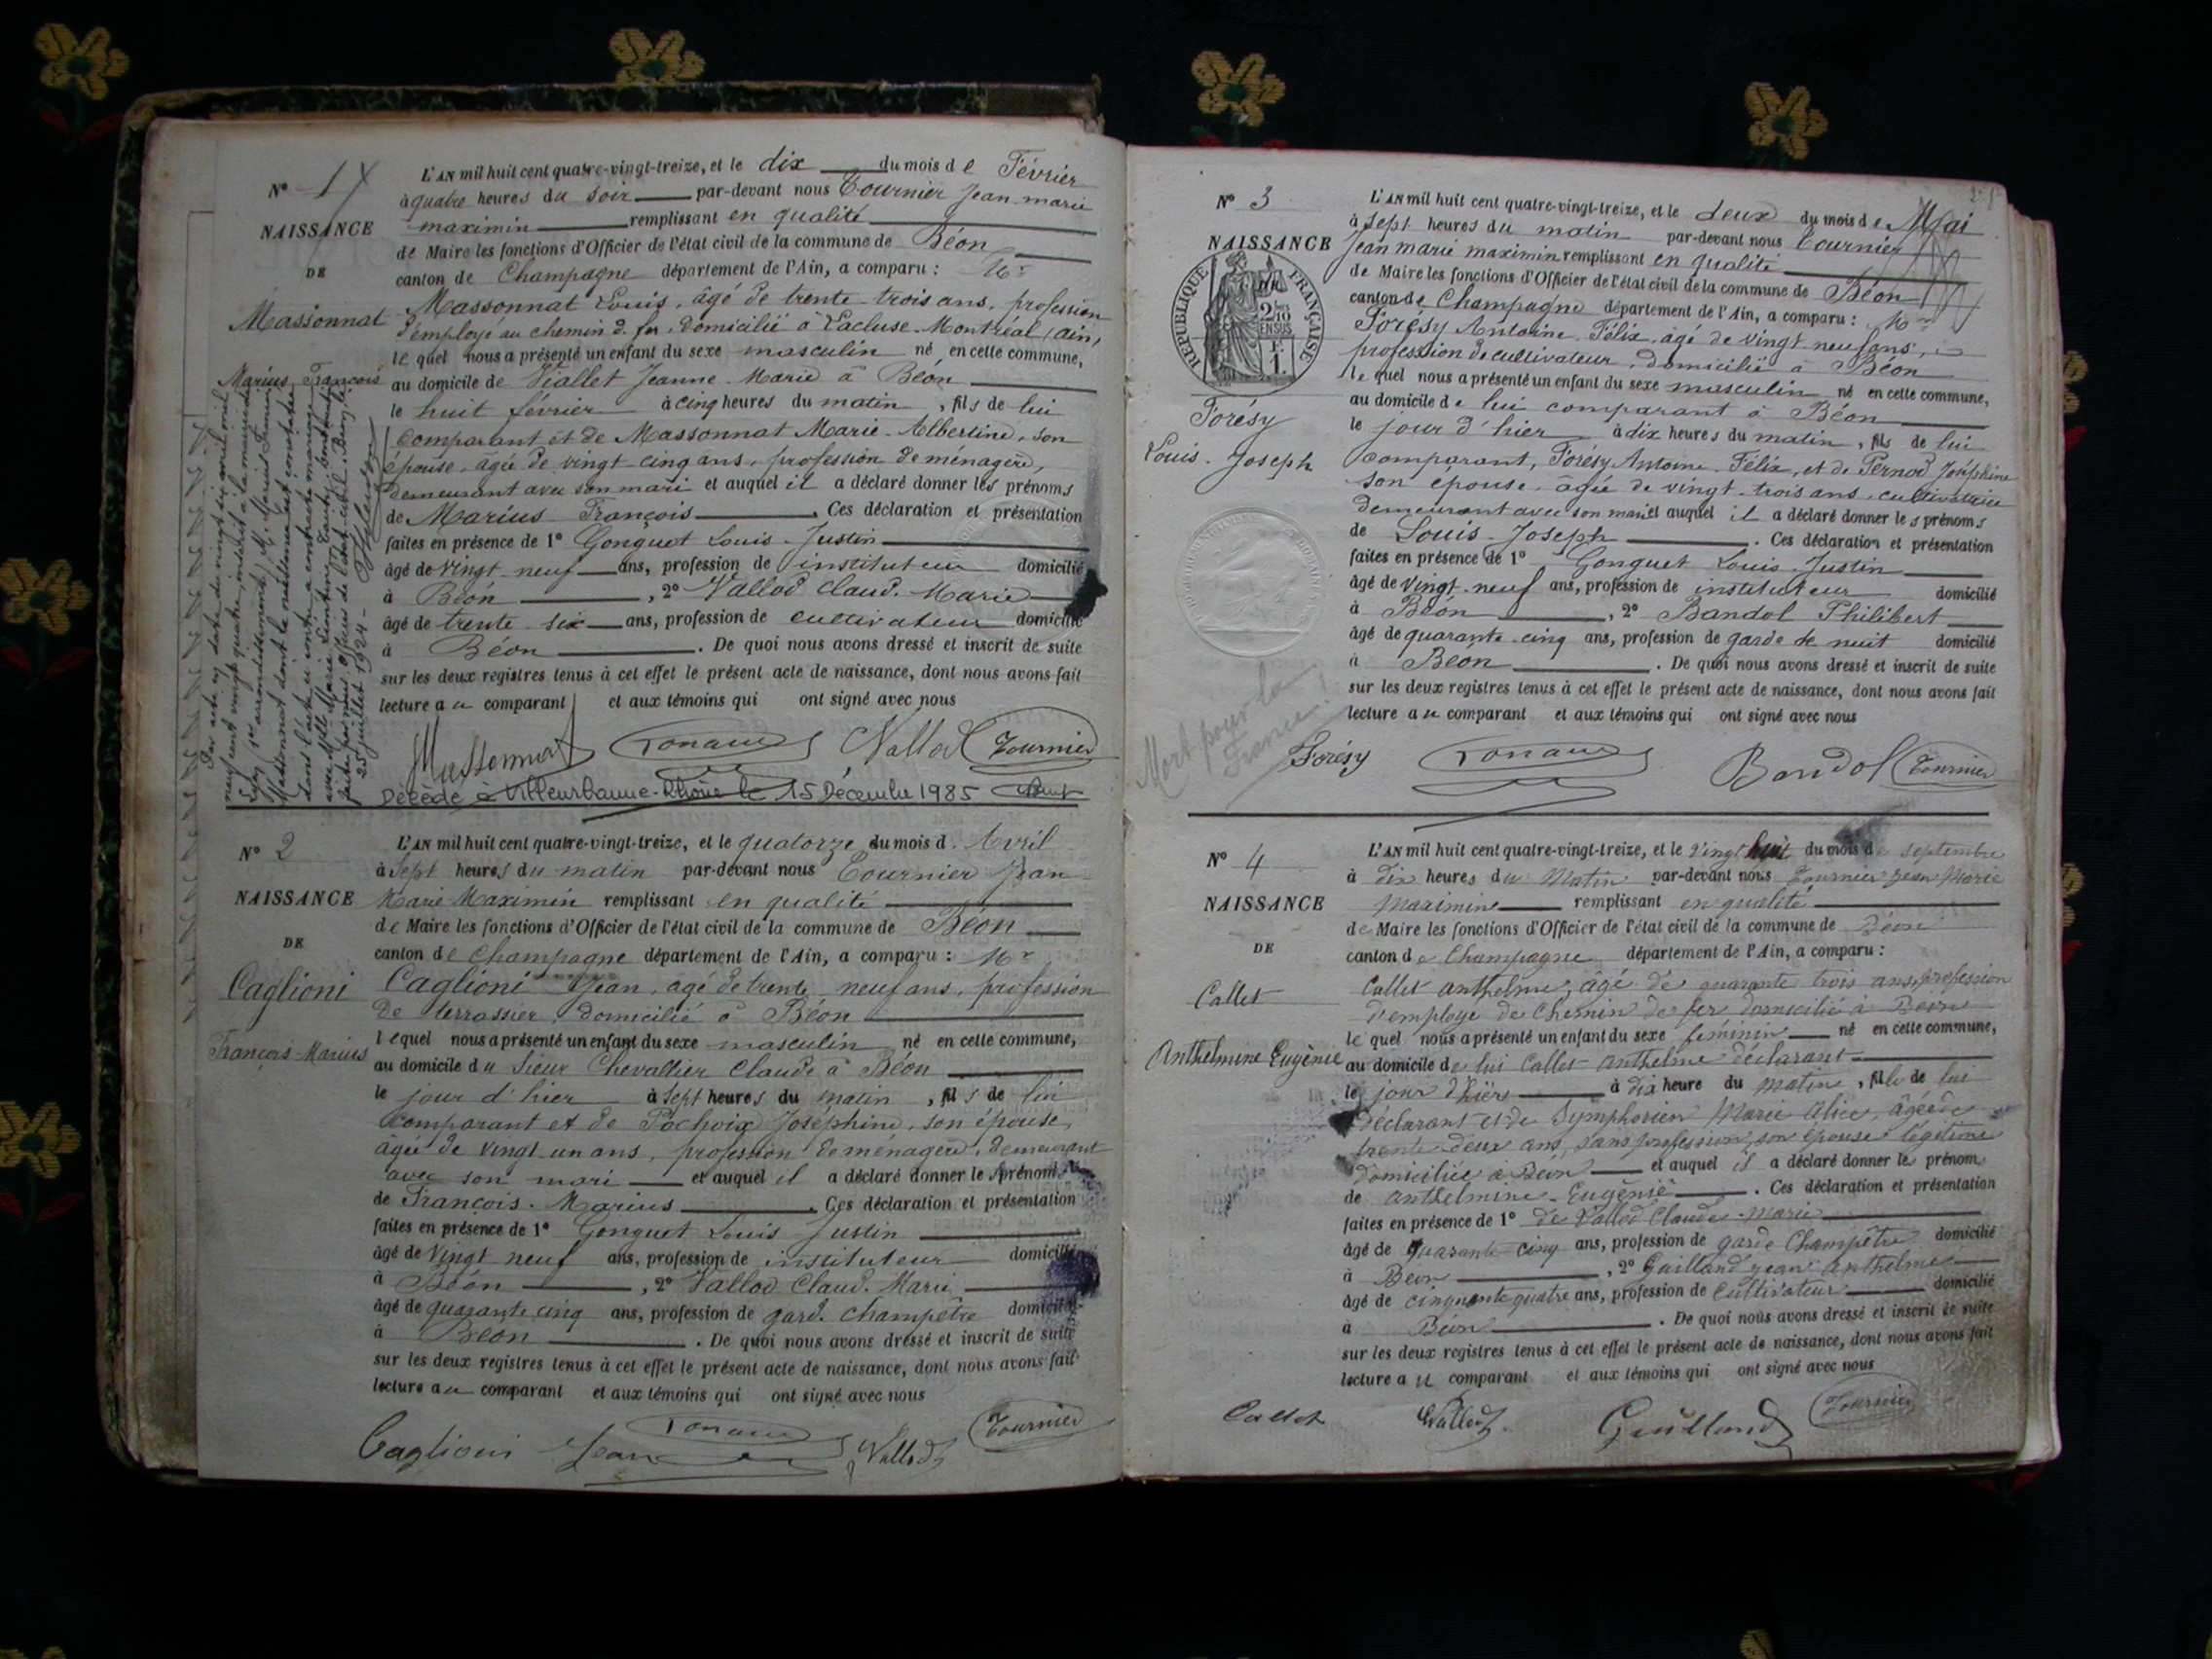 N° 1
NAISSANCE
DE
Massonnat
Marius François
L'AN mil huit cent quatre-vingt-treize, et le dix du mois de Février
à quatre heures du soir par-devant nous Tournier Jean marie
maximin remplissant en qualité
de Maire les fonctions d'Officier de l'état civil de la commune de Béon
canton de Champagne département de l'Ain, a comparu : Mr
Massonnat Louis, âgé de trente-trois ans, profession
d'employé au chemin d. fer, domicilié à Lacluse-Montréal (ain)
le quel nous a présenté un enfant du sexe masculin né en cette commune,
au domicile de Viallet Jeanne-Marie à Béon
le huit février à cinq heures du matin, fils de lui
comparant et de Massonnat Marie-Albertine, son
épouse, âgée de vingt-cinq ans, profession de ménagère,
demeurant avec son mari et auquel il a déclaré donner les prénoms
de Marius François. Ces déclaration et présentation
faites en présence de 1° Gonguet Louis-Justin
âgé de vingt neuf ans, profession de instituteur domicilié
à Béon, 2° Vallod Claud. Marie
âgé de trente six ans, profession de cultivateur domicilié
à Béon. De quoi nous avons dressé et inscrit de suite
sur les deux registres tenus à cet effet le présent acte de naissance, dont nous avons fait
lecture au comparant et aux témoins qui ont signé avec nous
Massonnat Vallod Tournier
Décédé à Villeurbanne-Rhône le 15 Décembre 1985
Par acte en date du vingt six avril mil
neuf cent vingt quatre, inscrit à la mairie de
Lyon arrondissement, M. Marius François
Massonnat dont la naissance est constatée
dans l'acte ci-contre a contracté mariage
avec Melle Marie
faite par nous Officier de l'état civil. Béon, le
25 juillet 1924-
N° 2
NAISSANCE
DE
Caglioni
François-Marius
L'AN mil huit cent quatre-vingt-treize, et le quatorze du mois d. Avril
à sept heures du matin par-devant nous Tournier Jean
Marie Maximin remplissant en qualité
de Maire les fonctions d'Officier de l'état civil de la commune de Béon
canton de Champagne département de l'Ain, a comparu : Mr
Caglioni Jean, agé de trente neuf ans, profession
de terrassier, domicilié à Béon
lequel nous a présenté un enfant du sexe masculin né en cette commune,
au domicile du Sieur Chevallier Claude à Béon
le jour d'hier à sept heures du matin, fils de lui
comparant et de Pochoix Joséphine, son épouse,
âgée de vingt un ans, profession de ménagère, demeurant
avec son mari et auquel il a déclaré donner les prénom
de François-Marius. Ces déclaration et présentation
faites en présence de 1° Gonguet Louis Justin
âgé de vingt neuf ans, profession de instituteur domicilié
à Béon, 2° Vallod Claud. Marie
âgé de quarante cinq ans, profession de gard. champêtre domicilié
à Béon. De quoi nous avons dressé et inscrit de suite
sur les deux registres tenus à cet effet le présent acte de naissance, dont nous avons fait
lecture au comparant et aux témoins qui ont signé avec nous
Caglioni Jean Vallod Tournier
N° 3
NAISSANCE
RÉPUBLIQUE FRANÇAISE
2/10 EN SUS
1.
Forésy
Louis-Joseph
Mort pour la
France!
L'AN mil huit cent quatre-vingt-treize, et le deux du mois de Mai
à sept heures du matin par-devant nous Tournier
Jean marie maximin remplissant en qualité
de Maire les fonctions d'Officier de l'état civil de la commune de Béon
canton de Champagne département de l'Ain, a comparu : Mr
Forésy Antoine-Félix, âgé de vingt-neuf ans,
profession de cultivateur, domicilié à Béon
le quel nous a présenté un enfant du sexe masculin né en cette commune,
au domicile de lui comparant à Béon
le jour d'hier à dix heures du matin, fils de lui
comparant, Forésy Antoine-Félix, et de Pernod Joséphine
son épouse, âgée de vingt-trois ans, cultivatrice
demeurant avec son mari et auquel il a déclaré donner les prénoms
de Louis-Joseph. Ces déclaration et présentation
faites en présence de 1° Gonguet Louis-Justin
âgé de vingt-neuf ans, profession de instituteur domicilié
à Béon, 2° Bandol Philibert
âgé de quarante-cinq ans, profession de garde de nuit domicilié
à Béon. De quoi nous avons dressé et inscrit de suite
sur les deux registres tenus à cet effet le présent acte de naissance, dont nous avons fait
lecture au comparant et aux témoins qui ont signé avec nous
Forésy Bandol Tournier
N° 4
NAISSANCE
DE
Callet
Anthelmine Eugénie
L'AN mil huit cent quatre-vingt-treize, et le vingt huit du mois de septembre
à dix heures du Matin par-devant nous Tournier Jean Marie
Maximin remplissant en qualité
de Maire les fonctions d'Officier de l'état civil de la commune de Béon
canton de Champagne département de l'Ain, a comparu :
Callet anthelme, âgé de quarante trois ans, profession
d'employé de chemin de fer domicilié à Béon
le quel nous a présenté un enfant du sexe féminin né en cette commune,
au domicile de lui Callet anthelme déclarant
le jour d'hier à dix heure du matin, fille de lui
déclarant et de Symphorien Marie Alice, âgée de
trente deux ans, sans profession, son épouse légitime
domiciliée à Béon et auquel il a déclaré donner le prénom
de anthelmine-Eugénie. Ces déclaration et présentation
faites en présence de 1° de Vallod Claude-Marie
âgé de quarante-cinq ans, profession de garde Champêtre domicilié
à Béon, 2° Guilland Jean anthelme
âgé de cinquante quatre ans, profession de Cultivateur domicilié
à Béon. De quoi nous avons dressé et inscrit de suite
sur les deux registres tenus à cet effet le présent acte de naissance, dont nous avons fait
lecture au comparant et aux témoins qui ont signé avec nous
Callet Vallod Guilland Tournier